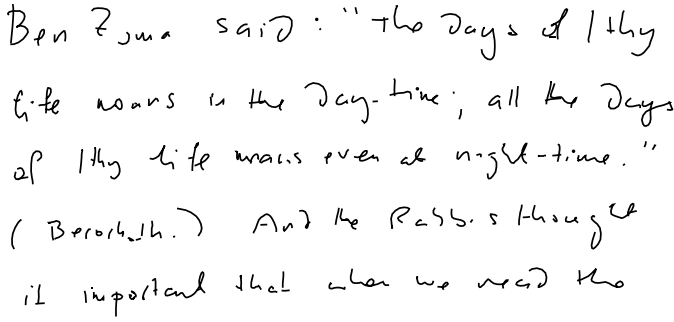 Ben Zoma said: "the Days of thy
life means in the Day-time; all the Days
of thy life means even at night-time."
(Berochoth.) And the Rabbis thought
it important that when we read the